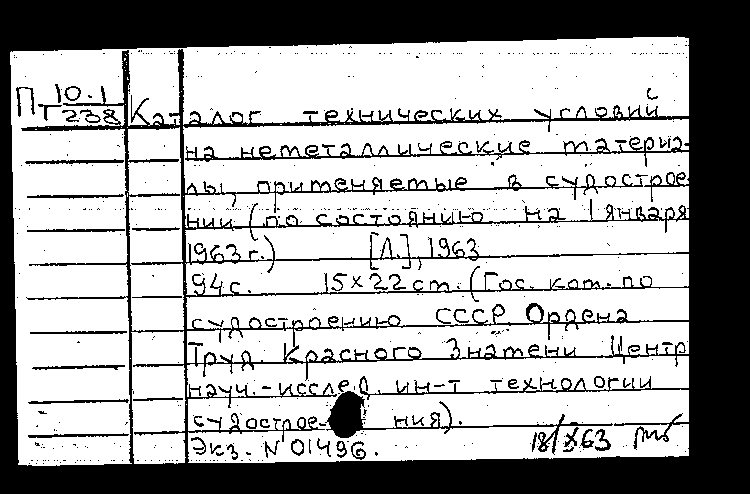 П 10.1
Т 238
Каталог технических условий
на неметаллические материа-
лы, применяемые в судострое
нии (по состоянию на 1 января
1963 г.) [Л.], 1963
94 с. 15×22 cm. (Гос. ком. по
судостроению СССР. Ордена
Труд. Красного Знамени Центр
науч.-исслед. ин-т технологии
судострое- ния).
Экз. N 01496.
18/X 63